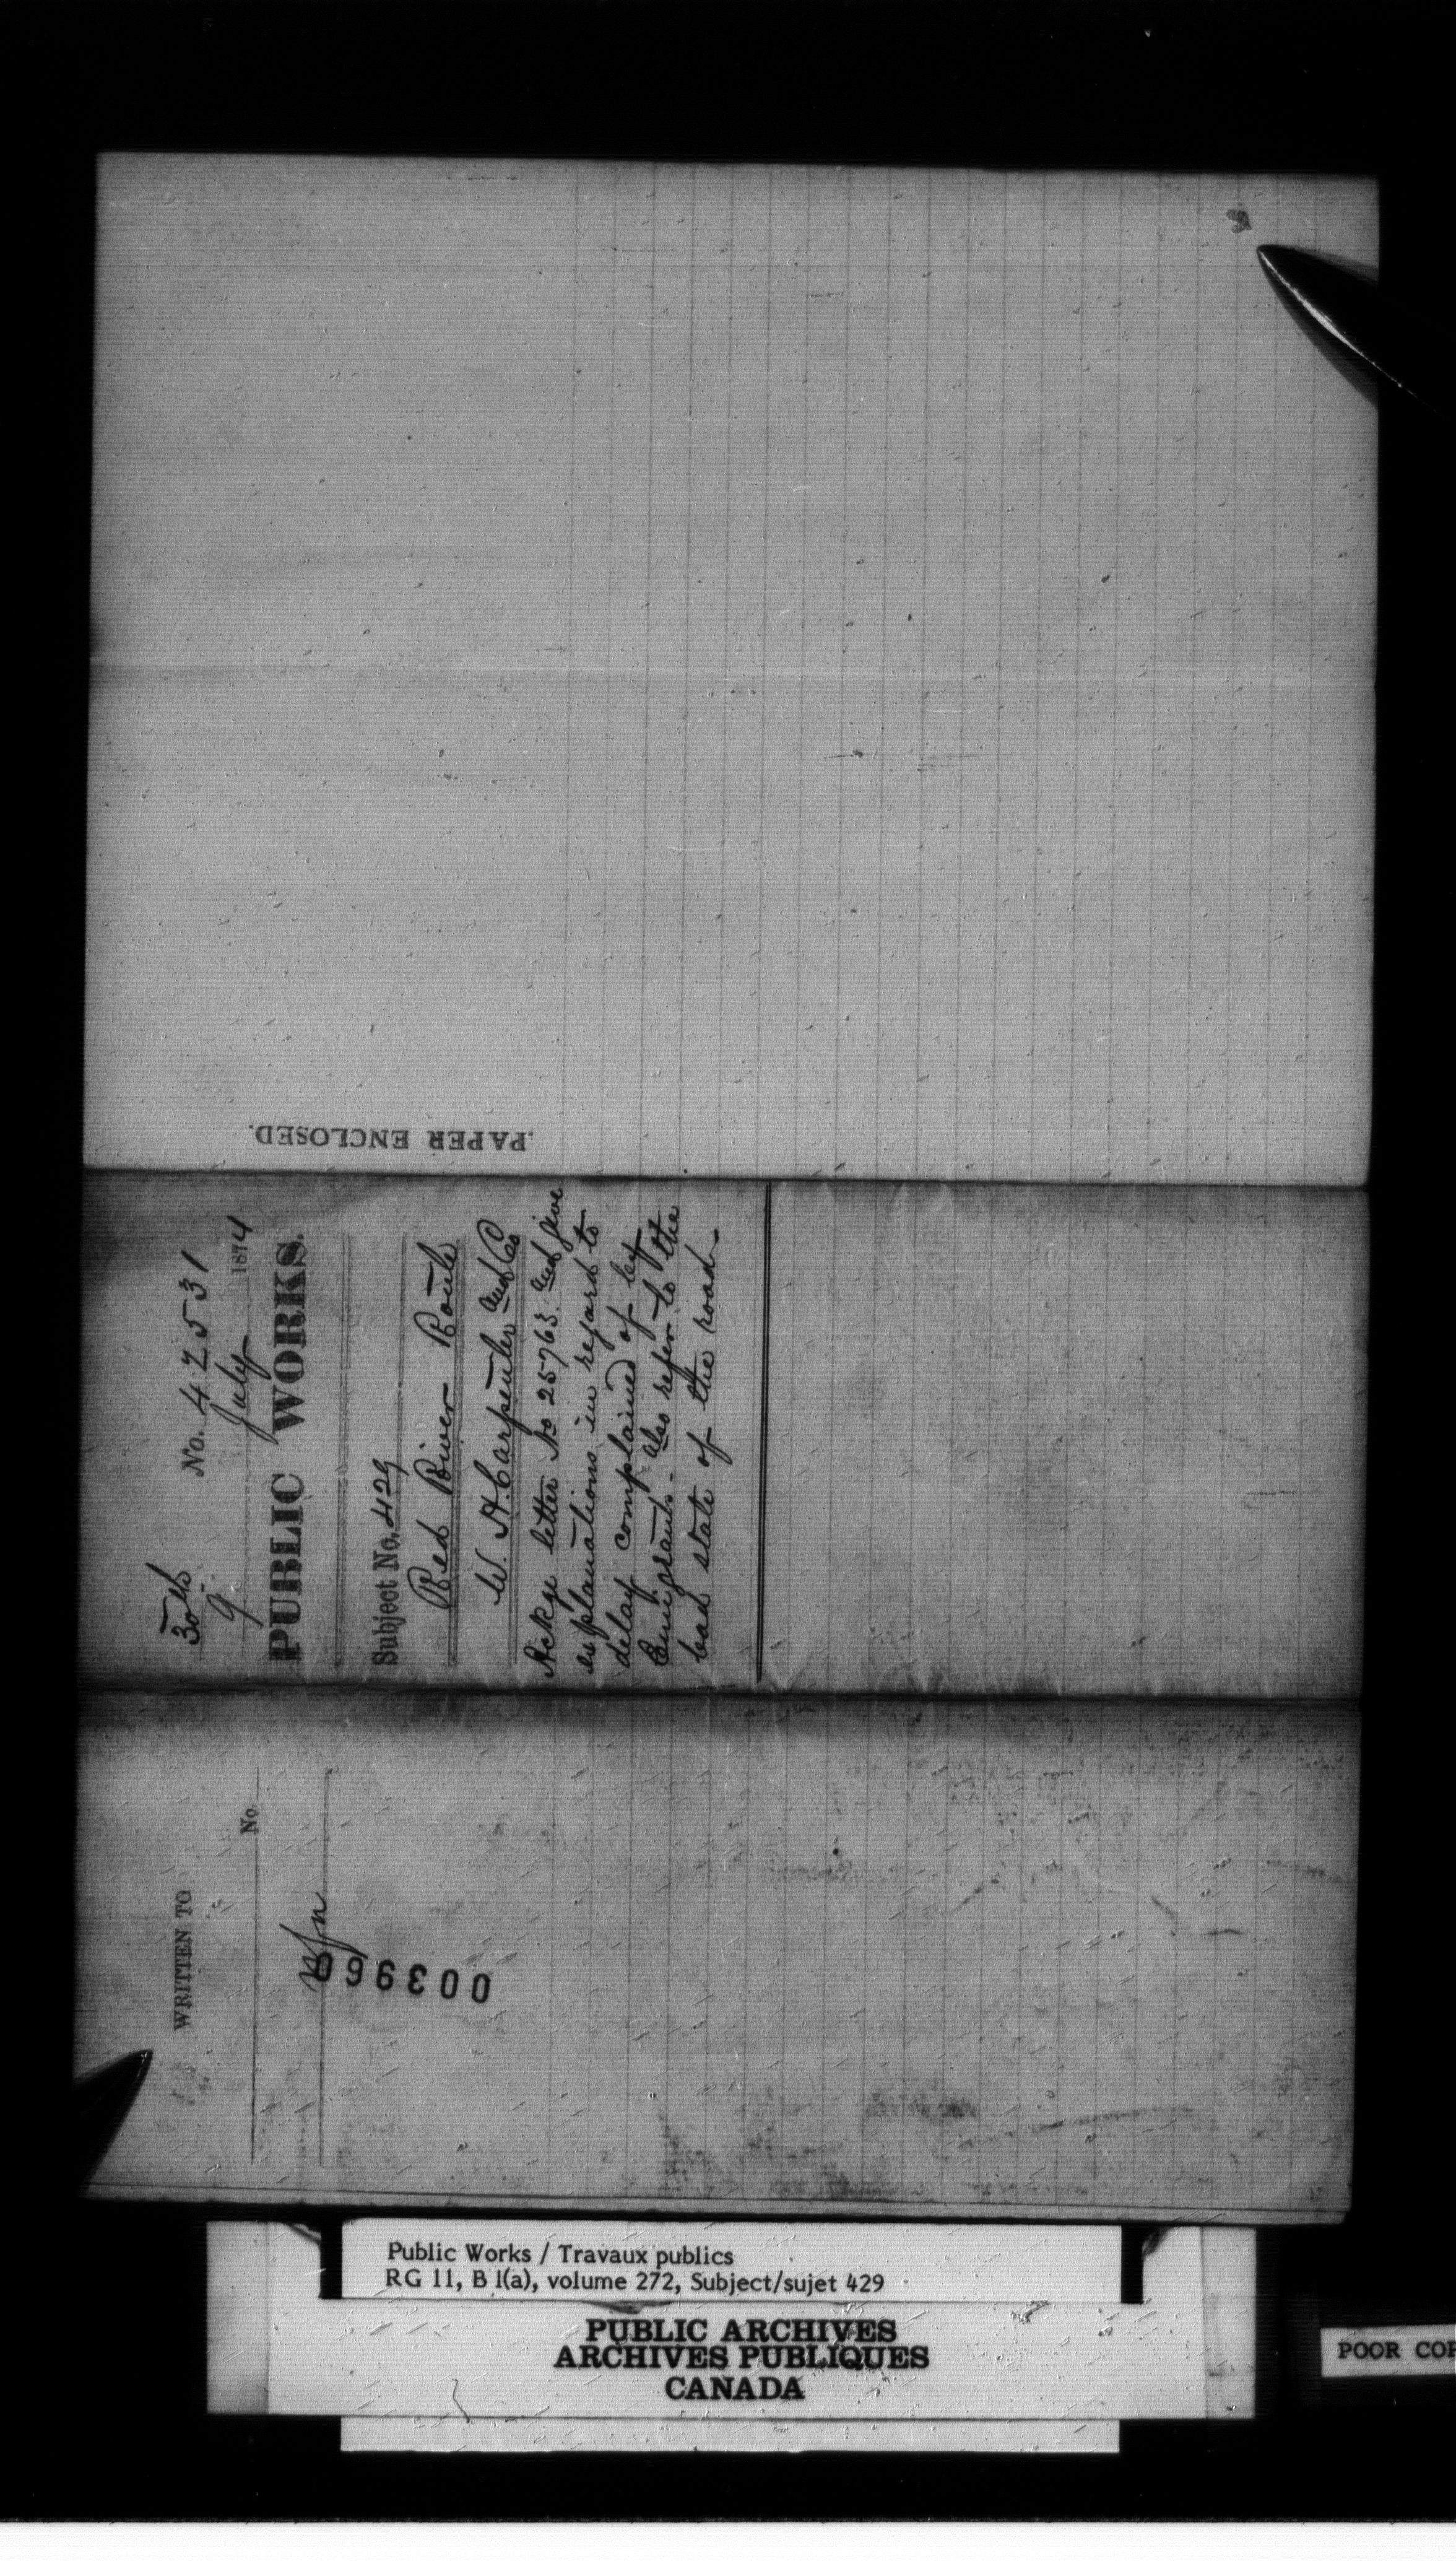 PAPER ENCLOSED.
30th
No. 42531
9 July 1874
PUBLIC WORKS.
Subject No. 429
Red River Route
W. H. Carpenter and Co
Ackge letter No 25763. and give
explanations in regard to
delay complained of by
Emigrants. also refer to the
bad state of the road
WRITTEN TO
No.
003960
Public Works / Travaux publics
RG 11, B 1(a), volume 272, Subject/sujet 429
PUBLIC ARCHIVES
ARCHIVES PUBLIQUES
CANADA
POOR COP